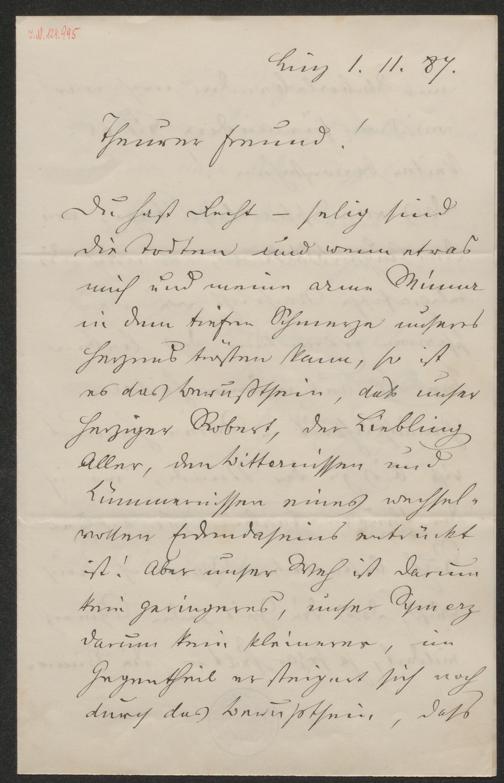 J.N. 124.995
Linz 1. 11. 87.
Theurer Freund!
Du hast Recht – selig sind
die Todten und wenn etwas
mich und meine arme Minna
in dem tiefen Schmerze unseres
Herzens trösten kann, so ist
es das Bewußtsein, daß unser
herziger Robert, der Liebling
Aller, den Bitternissen und
Kümmernissen eines wechsel-
vollen Erdendaseins entrückt
ist! Aber unser Weh ist darum
kein geringeres, unser Schmerz
darum kein kleinerer, im
Gegentheil er steigert sich noch
durch das Bewußtsein, daß